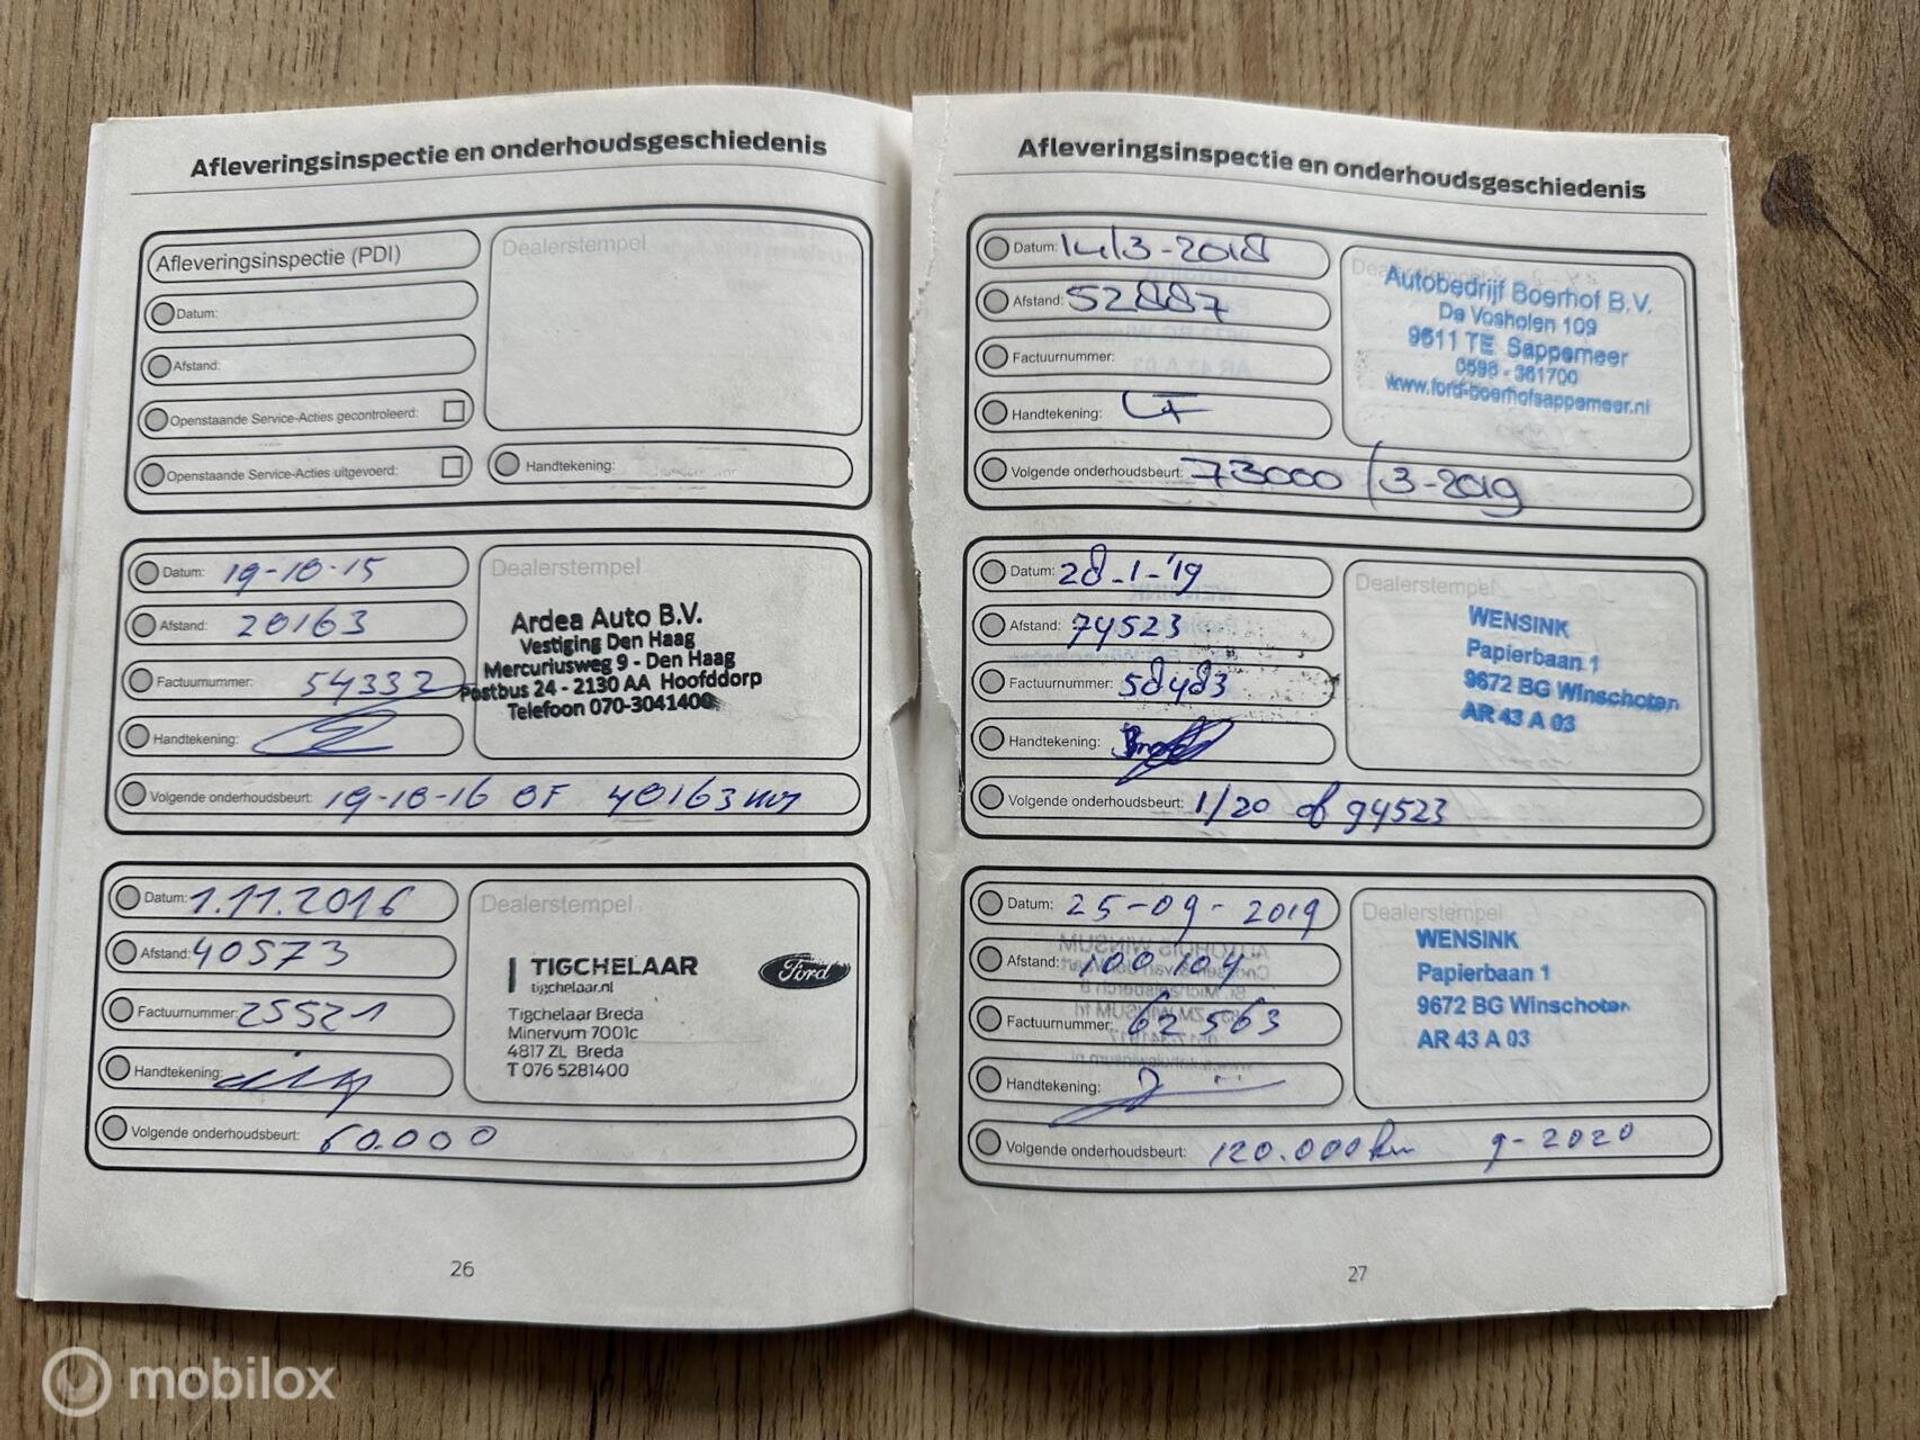 Afleveringsinspectie en onderhoudsgeschiedenis
Afleveringsinspectie (PDI)
Dealerstempel
Datum:
Afstand:
Openstaande Service-Acties gecontroleerd:
Openstaande Service-Acties uitgevoerd:
Handtekening:
Datum: 19-10-15
Dealerstempel
Afstand: 20163
Ardea Auto B.V.
Vestiging Den Haag
Mercuriusweg 9 - Den Haag
Postbus 24 - 2130 AA Hoofddorp
Telefoon 070-3041400
Factuurnummer: 54332
Handtekening:
Volgende onderhoudsbeurt: 19-10-16 OF 40163 km
Datum: 1.11.2016
Dealerstempel
Afstand: 40573
TIGCHELAAR
tigchelaar.nl
Ford
Tigchelaar Breda
Minervum 7001c
4817 ZL Breda
T 076 5281400
Factuurnummer: 25521
Handtekening:
Volgende onderhoudsbeurt: 60.000
26
Afleveringsinspectie en onderhoudsgeschiedenis
Datum: 14/3-2018
Autobedrijf Boerhof B.V.
De Vosholen 109
9611 TE Sappemeer
0598 - 381700
www.ford-boerhofsappemeer.nl
Afstand: 52887
Factuurnummer:
Handtekening:
Volgende onderhoudsbeurt: 73000 / 3-2019
Datum: 28-1-'19
Dealerstempel
WENSINK
Papierbaan 1
9672 BG Winschoten
AR 43 A 03
Afstand: 74523
Factuurnummer: 58483
Handtekening:
Volgende onderhoudsbeurt: 1/20 of 94523
Datum: 25-09-2019
Dealerstempel
WENSINK
Papierbaan 1
9672 BG Winschoten
AR 43 A 03
Afstand: 100 104
Factuurnummer: 62563
Handtekening:
Volgende onderhoudsbeurt: 120.000 km 9-2020
27
mobilox